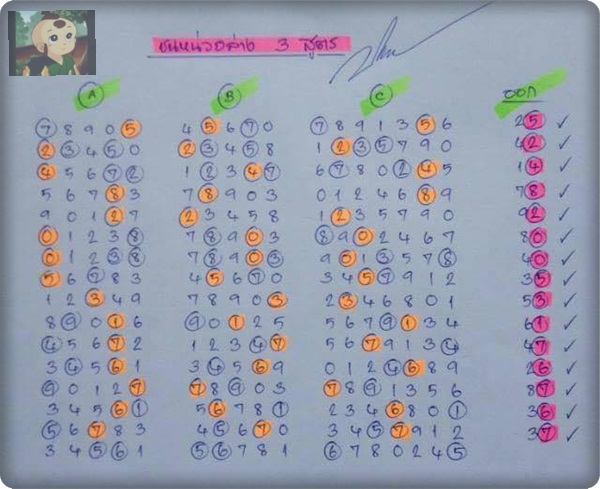 ชนหน่วยล่าง 3 สูตร
A B C ออก
7 8 9 0 5 4 5 6 7 0 7 8 9 1 3 5 6 25 ✓
2 3 4 5 0 2 3 4 5 8 1 2 3 5 7 9 0 42 ✓
4 5 6 7 2 1 2 3 4 7 6 7 8 0 2 4 5 14 ✓
5 6 7 8 3 7 8 9 0 3 0 1 2 4 6 8 9 78 ✓
9 0 1 2 7 2 3 4 5 8 1 2 3 5 7 9 0 92 ✓
0 1 2 3 8 7 8 9 0 3 8 9 0 2 4 6 7 80 ✓
0 1 2 3 8 7 8 9 0 3 9 0 1 3 5 7 8 40 ✓
5 6 7 8 3 4 5 6 7 0 3 4 5 7 9 1 2 35 ✓
1 2 3 4 9 7 8 9 0 3 2 3 4 6 8 0 1 53 ✓
8 9 0 1 6 9 0 1 2 5 5 6 7 9 1 3 4 61 ✓
4 5 6 7 2 1 2 3 4 7 5 6 7 9 1 3 4 47 ✓
3 4 5 6 1 3 4 5 6 9 0 1 2 4 6 8 9 26 ✓
9 0 1 2 7 7 8 9 0 3 7 8 9 1 3 5 6 87 ✓
3 4 5 6 1 5 6 7 8 1 2 3 4 6 8 0 1 36 ✓
5 6 7 8 3 4 5 6 7 0 3 4 5 7 9 1 2 37 ✓
3 4 5 6 1 5 6 7 8 1 6 7 8 0 2 4 5